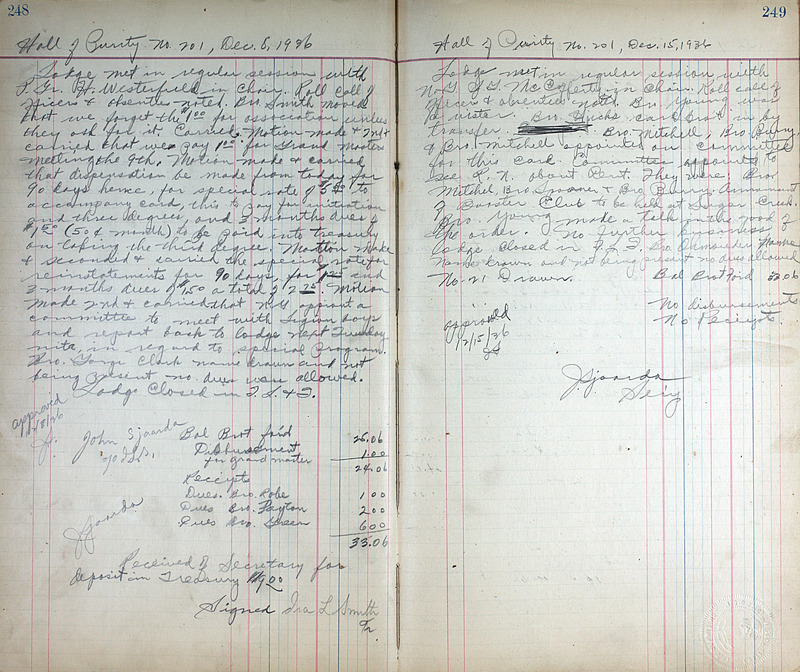 248
Hall of Purity No. 201, Dec. 8, 1936
Lodge met in regular session with
P. Gr. H. Westerfield in Chair. Roll call of
officers & absenties noted. Bro. Smith moved
that we forget the $1.00 for association unless
they ask for it. Carried. Motion made & 2nd &
carried that we pay 1.00 for Grand Masters
meeting the 9th. Motion made & carried
that dispensation be made from today for
90 days hence, for special rate of to
accompany card, this to pay for initiation
and three degrees, and 3 months dues of
$1.50 (50¢ month) to be paid into treasury
on taking the third degree. Motion made
& seconded & carried the special rate for
reinstatements for 90 days, for and
3 months dues of $1.50 a total of Motion
made 2nd & carried that N.G. appoint a
committee to meet with Legion boys
and report back to lodge next Tuesday
nite, in regard to special Program.
Bro. Clark name drawn and not
being present no dues were allowed.
Lodge Closed in F. L. & T.
approved
John Sjaarda Bal Brot for'd 25.06
Disbursement
for grand master 1.00
24.06
Receipts
Dues. Bro. Robe 1 00
Dues Bro. Payton 2 00
Dues Bro. Green 6 00
33.06
J Sjaarda
Received of Secretary for
deposit in Treasury
Signed Ira L Smith
Tr.
249
Hall of Purity No. 201, Dec. 15, 1936
Lodge met in regular session with
N. G. McCafferty in Chair. Roll call of
officers & absenties noted. Bro. Young was
a visiter. Bro. card brot in by
transfer. Bro. Mitchell, Bro. Burry
& Bro. Mitchell appointed on committee
for this card. Committee appointed to
see about Rent. They were Bro
Mitchel, Bro. & Bro. Burry.
of Booster Club to be held at Sugar Creek.
Bro. Young made a talk on the good of
the order. No further business
lodge closed in F. L. T. Bro
name drawn and not being present no dues allowed
No. 21 Drawn. Bal Brot Ford 33.06
No disbursements
No Receipts.
approved
12/15/36
J Sjaarda
Sec'y